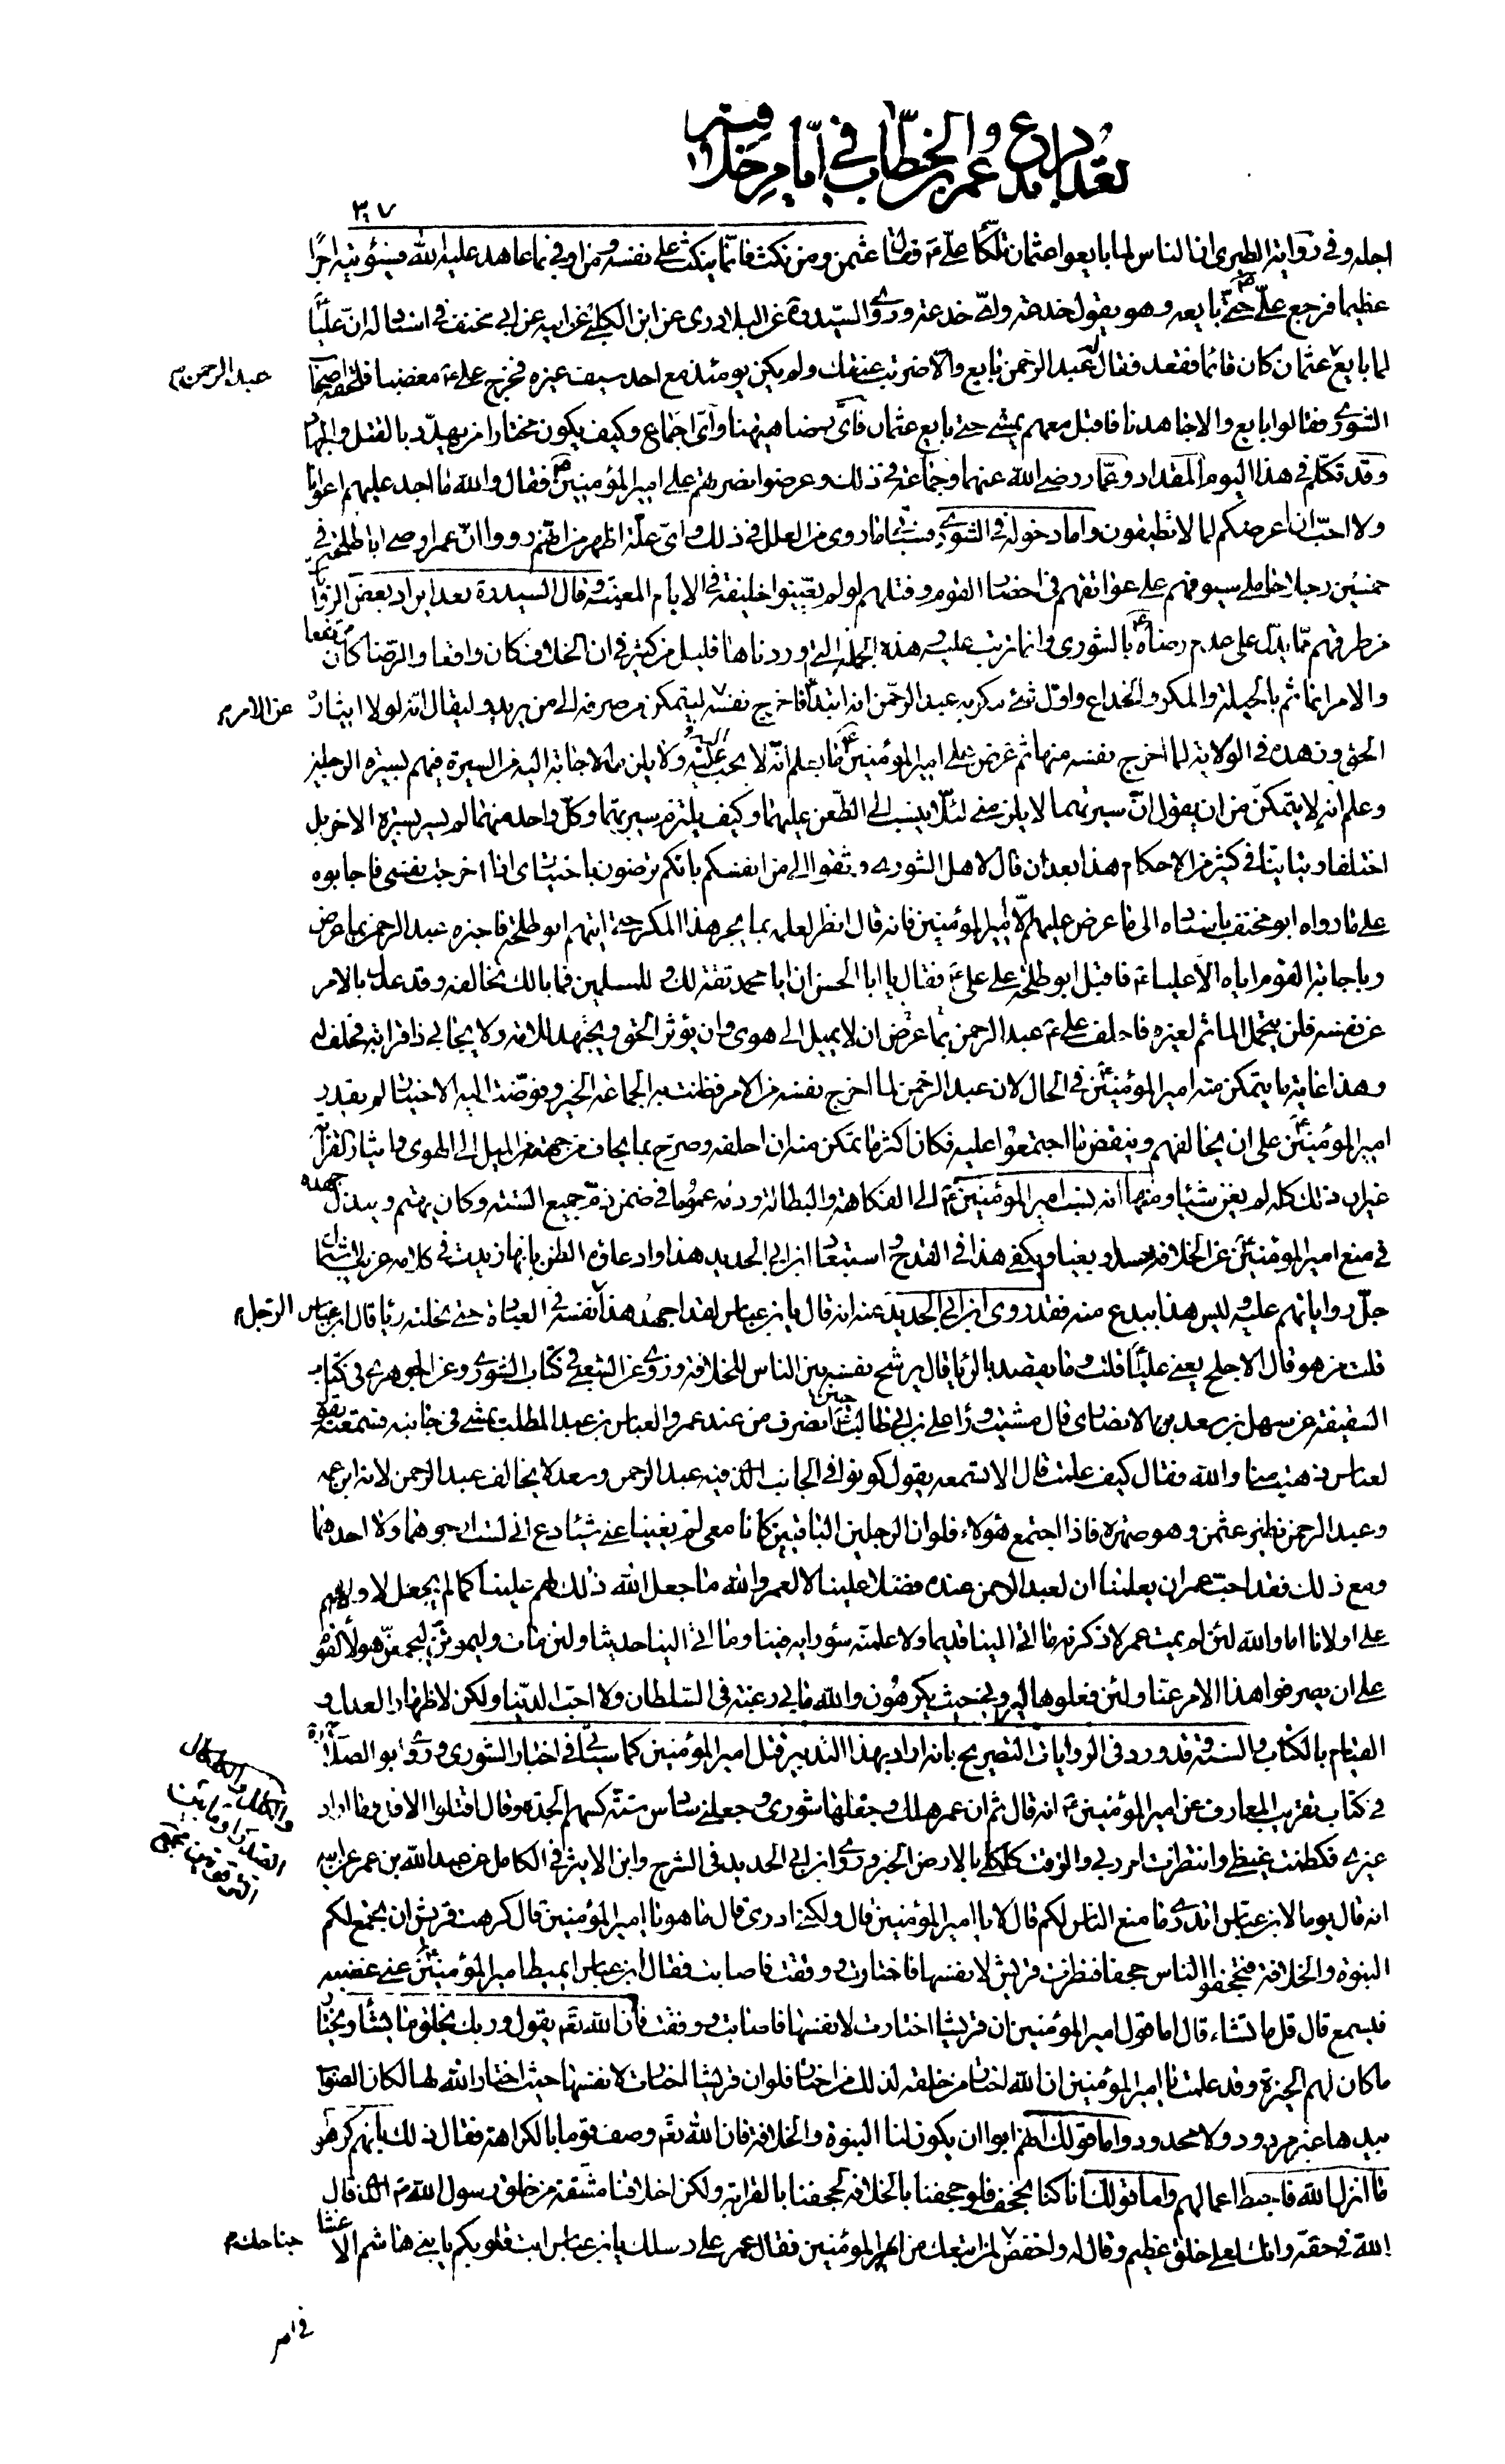 تعداد بدع عمر و الخطاب في ايام خلافته
٣٠٧
اجله و في رواية الطبري ان الناس لما بايعوا عثمان تلكأ علي ع فقال عثمن و من نكث فانما ينكث على نفسه و من اوفى بما عاهد عليه الله فسيؤتيه اجرًا
عظيما فرجع علي حتى بايعه و هو يقول خدعة و اي خدعة و روى السيد ره عن البلاذري عن ابن الكلبي عن ابيه عن ابي مخنف في اسناد له ان عليًا
لما بايع عثمان كان قائما فقعد فقال له عبد الرحمن بايع و الا ضربت عنقك و لم يكن يومئذ مع احد سيف غيره فخرج علي ع مغضبا فلحقه اصحاب
عبد الرحمن
الشورى فقالوا بايع و الا جاهدناك فاقبل معهم يمشي حتى بايع عثمان فاي رضا هيهنا و اي اجماع و كيف يكون مختارا من يهدد بالقتل و الجهاد
و قد تكلم في هذا اليوم المقداد و عمار رضي الله عنهما و جماعة في ذلك و عرضوا نصرتهم على امير المؤمنين فقال و الله ما اجد عليهم اعوانا
و لا احب ان اعرضكم لما لا تطيقون و اما دخوله في الشورى فسيأتي ما روي من العلل في ذلك و اي علة اظهر من انهم رووا ان عمر اوصى ابا طلحة في
خمسين رجلا حاملي سيوفهم على عواتقهم في احضار القوم و قتلهم لو لم يعينوا خليفة في الايام المعينة و قال السيد ره بعد ايراد بعض الروايات
من طرقهم مما يدل على عدم رضاه بالشورى و انما ترتب عليه هذه الجملة التي اوردناها قليل من كثير في ان الخلاف كان واقعا و الرضا كان مرتفعا
و الامر انما تم بالحيلة و المكر و الخداع و اول شئ مكر به عبد الرحمن انه ابتدأ فاخرج نفسه ليتمكن من صرفه الى من يريد و ليقال انه لو لا ايثاره
عن الامر
الحق و زهده في الولاية لما اخرج نفسه منها ثم عرض على امير المؤمنين ما يعلم انه لا يجيب اليه و لا يلزمه الاجابة اليه من السيرة فيهم بسيرة الرجلين
و علم انه لا يتمكن من ان يقول ان سيرتهما لا يلزمني لئلا ينسب الى الطعن عليهما و كيف يلتزم سيرتهما و كل واحد منهما لم يسر بسيرة الاخر بل
اختلفا و تباينا في كثير من الاحكام هذا بعد ان قال لاهل الشورى وثقوا لي من انفسكم بانكم ترضون باختياري اذا اخرجت نفسي فاجابوه
على ما رواه ابو مخنف باسناده الى ما عرض عليهم الا امير المؤمنين فانه قال انظر لعلمه بما يجر هذا المكر حتى اتيهم ابو طلحة فاخبره عبد الرحمن بما عرض
و باجابة القوم اياه الا عليا ع فاقبل ابو طلحة على علي ع فقال يا ابا الحسن ان ابا محمد ثقة لك و للمسلمين فما بالك تخالفه و قد عدل بالامر
عن نفسه فلن يتحمل الماثم لغيره فاحلف علي ع عبد الرحمن بما عرض ان لا يميل الى هوى و ان يؤثر الحق و يجتهد للامة و لا يحابي ذا قرابة فحلف له
و هذا غاية ما يتمكن منه امير المؤمنين في الحال لان عبد الرحمن لما اخرج نفسه من الامر فظنت به الجماعة الخير و فوضت اليه الاختيار لم يقدر
امير المؤمنين على ان يخالفهم و ينقض ما اجتمعوا عليه فكان اكثر ما تمكن منه ان احلفه و صرح بما يخاف من جهته من الميل الى الهوى و ايثار القرابة
غير ان ذلك كله لم يغن شيئا و منها انه نسب امير المؤمنين ع الى الفكاهة و البطالة و ذمه عموما في ضمن ذم جميع الستة و كان يهتم و يبذل جهده
في منع امير المؤمنين عن الخلافة حسدا و بغيا و يكفي هذا في القدح و استبعاد ابن ابي الحديد هذا و ادعاؤه الظن بانها زيدت في كلامه غريب لاشتمال
جل رواياتهم عليه و ليس هذا ببدع منه فقد روى ابن ابي الحديد عنه انه قال يا بن عباس لقد اجهد هذا نفسه في العبادة حتى نحلته رياء قال ابن عباس
الرجل
قلت من هو قال الاجلح يعني عليًا قلت و ما يقصد بالرياء قال يرشح نفسه بين الناس للخلافة و روى عن الشعبي في كتاب الشورى و عن الجوهري في كتاب
السقيفة عن سهل بن سعد الانصاري قال مشيت وراء علي بن ابي طالب حين انصرف من عند عمر و العباس بن عبد المطلب يمشي في جانبه فسمعته يقول
لعباس ذهبت منا و الله فقال كيف علمت قال الا تسمعه يقول كونوا في الجانب الذي فيه عبد الرحمن و سعد لا يخالف عبد الرحمن لانه ابن عمه
و عبد الرحمن نظير عثمن و هو صهره فاذا اجتمع هؤلاء فلو ان الرجلين الباقيين كانا معي لم يغنيا عني شيئا دع اني لست ارجوهما و لا احدهما
و مع ذلك فقد احب عمر ان يعلمنا ان لعبد الرحمن عنده فضلا علينا لا لعمر و الله ما جعل الله ذلك لهم علينا كما لم يجعل لاوليهم
على اولانا اما و الله لئن لم يمت عمر لاذكرنه ما اتى الينا قديما و لاعلمته سوء رايه فينا و ما اتى الينا حديثا و لئن مات و ليموتن ليجمعن هؤلاء القوم
على ان يصرفوا هذا الامر عنا و لئن فعلوها ليروني حيث يكرهون و الله ما بي رغبة في السلطان و لا احب الدنيا و لكن لاظهار العدل و
القيام بالكتاب و السنة و قد ورد في الروايات التصريح بانه اراد بهذا التدبير قتل امير المؤمنين كما سيأتي في اخبار الشورى و روى ابو الصلاح ره
في كتاب تقريب المعارف عن امير المؤمنين ع انه قال ثم ان عمر هلك و جعلها شورى و جعلني سادس ستة كسهم الجدة و قال اقتلوا الاقل و ما اراد
غيري فكظمت غيظي و انتظرت امر ربي و الزقت كلكلي بالارض الخبر و روى ابن ابي الحديد في الشرح و ابن الاثير في الكامل عن عبد الله بن عمر عن ابيه
انه قال يوما لابن عباس اتدري ما منع الناس لكم قال لا يا امير المؤمنين قال و لكني ادري قال ما هو يا امير المؤمنين قال كرهت قريش ان يجتمع لكم
النبوة و الخلافة فتجخفوا الناس جخفا فنظرت قريش لانفسها فاختارت و وفقت فاصابت فقال ابن عباس ايميط امير المؤمنين عني غضبه
فيسمع قال قل ما تشاء قال اما قول امير المؤمنين ان قريشا اختارت لانفسها فاصابت و وفقت فان الله تعم يقول و ربك يخلق ما يشاء و يختار
ما كان لهم الخيرة و قد علمت يا امير المؤمنين ان الله اختار من خلقه لذلك من اختار فلو ان قريشا اختارت لانفسها حيث اختار الله لها لكان الصواب
بيدها غير مردود و لا محدود و اما قولك انهم ابوا ان يكون لنا النبوة و الخلافة فان الله تعم وصف قوما بالكراهة فقال ذلك بانهم كرهوا
ما انزل الله فاحبط اعمالهم و اما قولك انا كنا نجخف فلو جخفنا بالخلافة لجخفنا بالقرابة و لكن اخلاقنا مشتقة من خلق رسول الله ص الذي قال
الله في حقه و انك لعلى خلق عظيم و قال له و اخفض لمن اتبعك من المؤمنين فقال عمر على رسلك يا بن عباس ابت قلوبكم يا بني هاشم الا غشا
جناحك
في امر